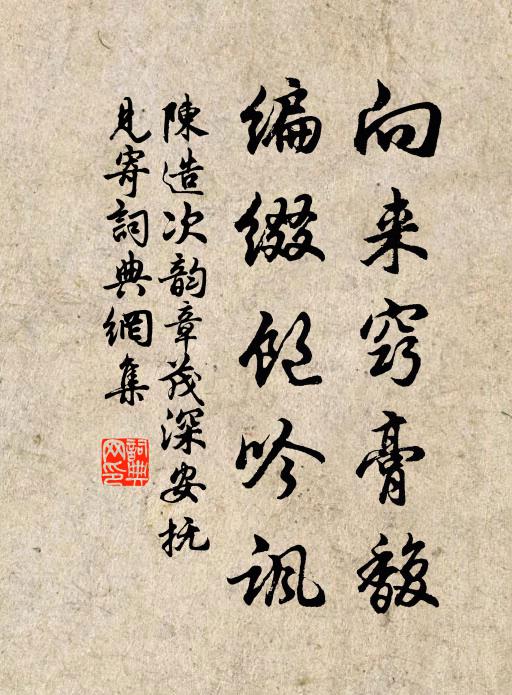 向来窍膏馥
编缀饱吟讽
陳造次韵章茂深安抚
見寄詞典網集
詞典网印